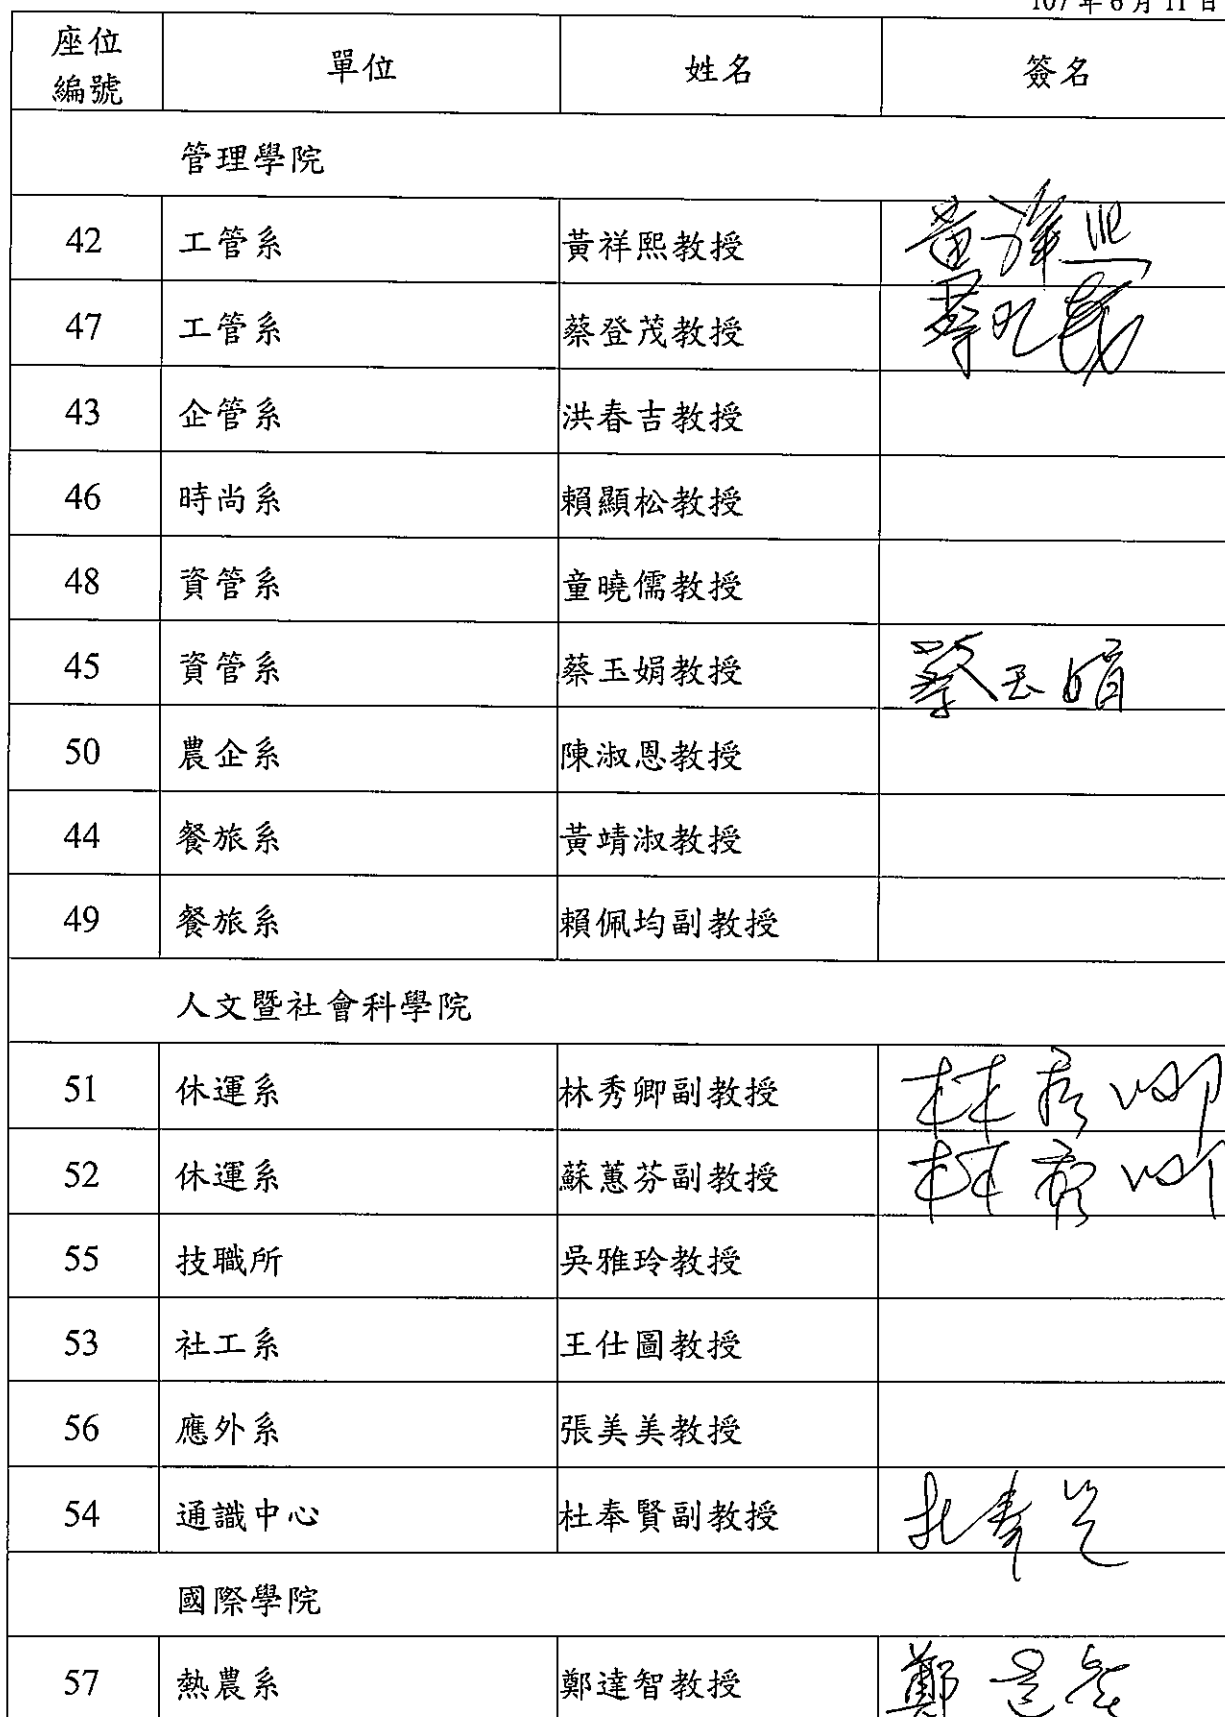 107年6月11日
座位編號 單位 姓名 簽名
管理學院
42 工管系 黃祥熙教授 黃祥熙
47 工管系 蔡登茂教授 蔡登茂
43 企管系 洪春吉教授
46 時尚系 賴顯松教授
48 資管系 童曉儒教授
45 資管系 蔡玉娟教授 蔡玉娟
50 農企系 陳淑恩教授
44 餐旅系 黃靖淑教授
49 餐旅系 賴佩均副教授
人文暨社會科學院
51 休運系 林秀卿副教授 林秀卿
52 休運系 蘇蕙芬副教授 林秀卿
55 技職所 吳雅玲教授
53 社工系 王仕圖教授
56 應外系 張美美教授
54 通識中心 杜奉賢副教授 杜奉賢
國際學院
57 熱農系 鄭達智教授 鄭達智